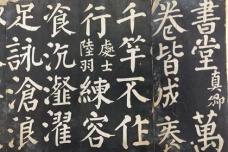 書堂真卿萬
卷皆成袠
千竿不作
行處士陸羽練容
飡沆瀣濯
足詠滄浪